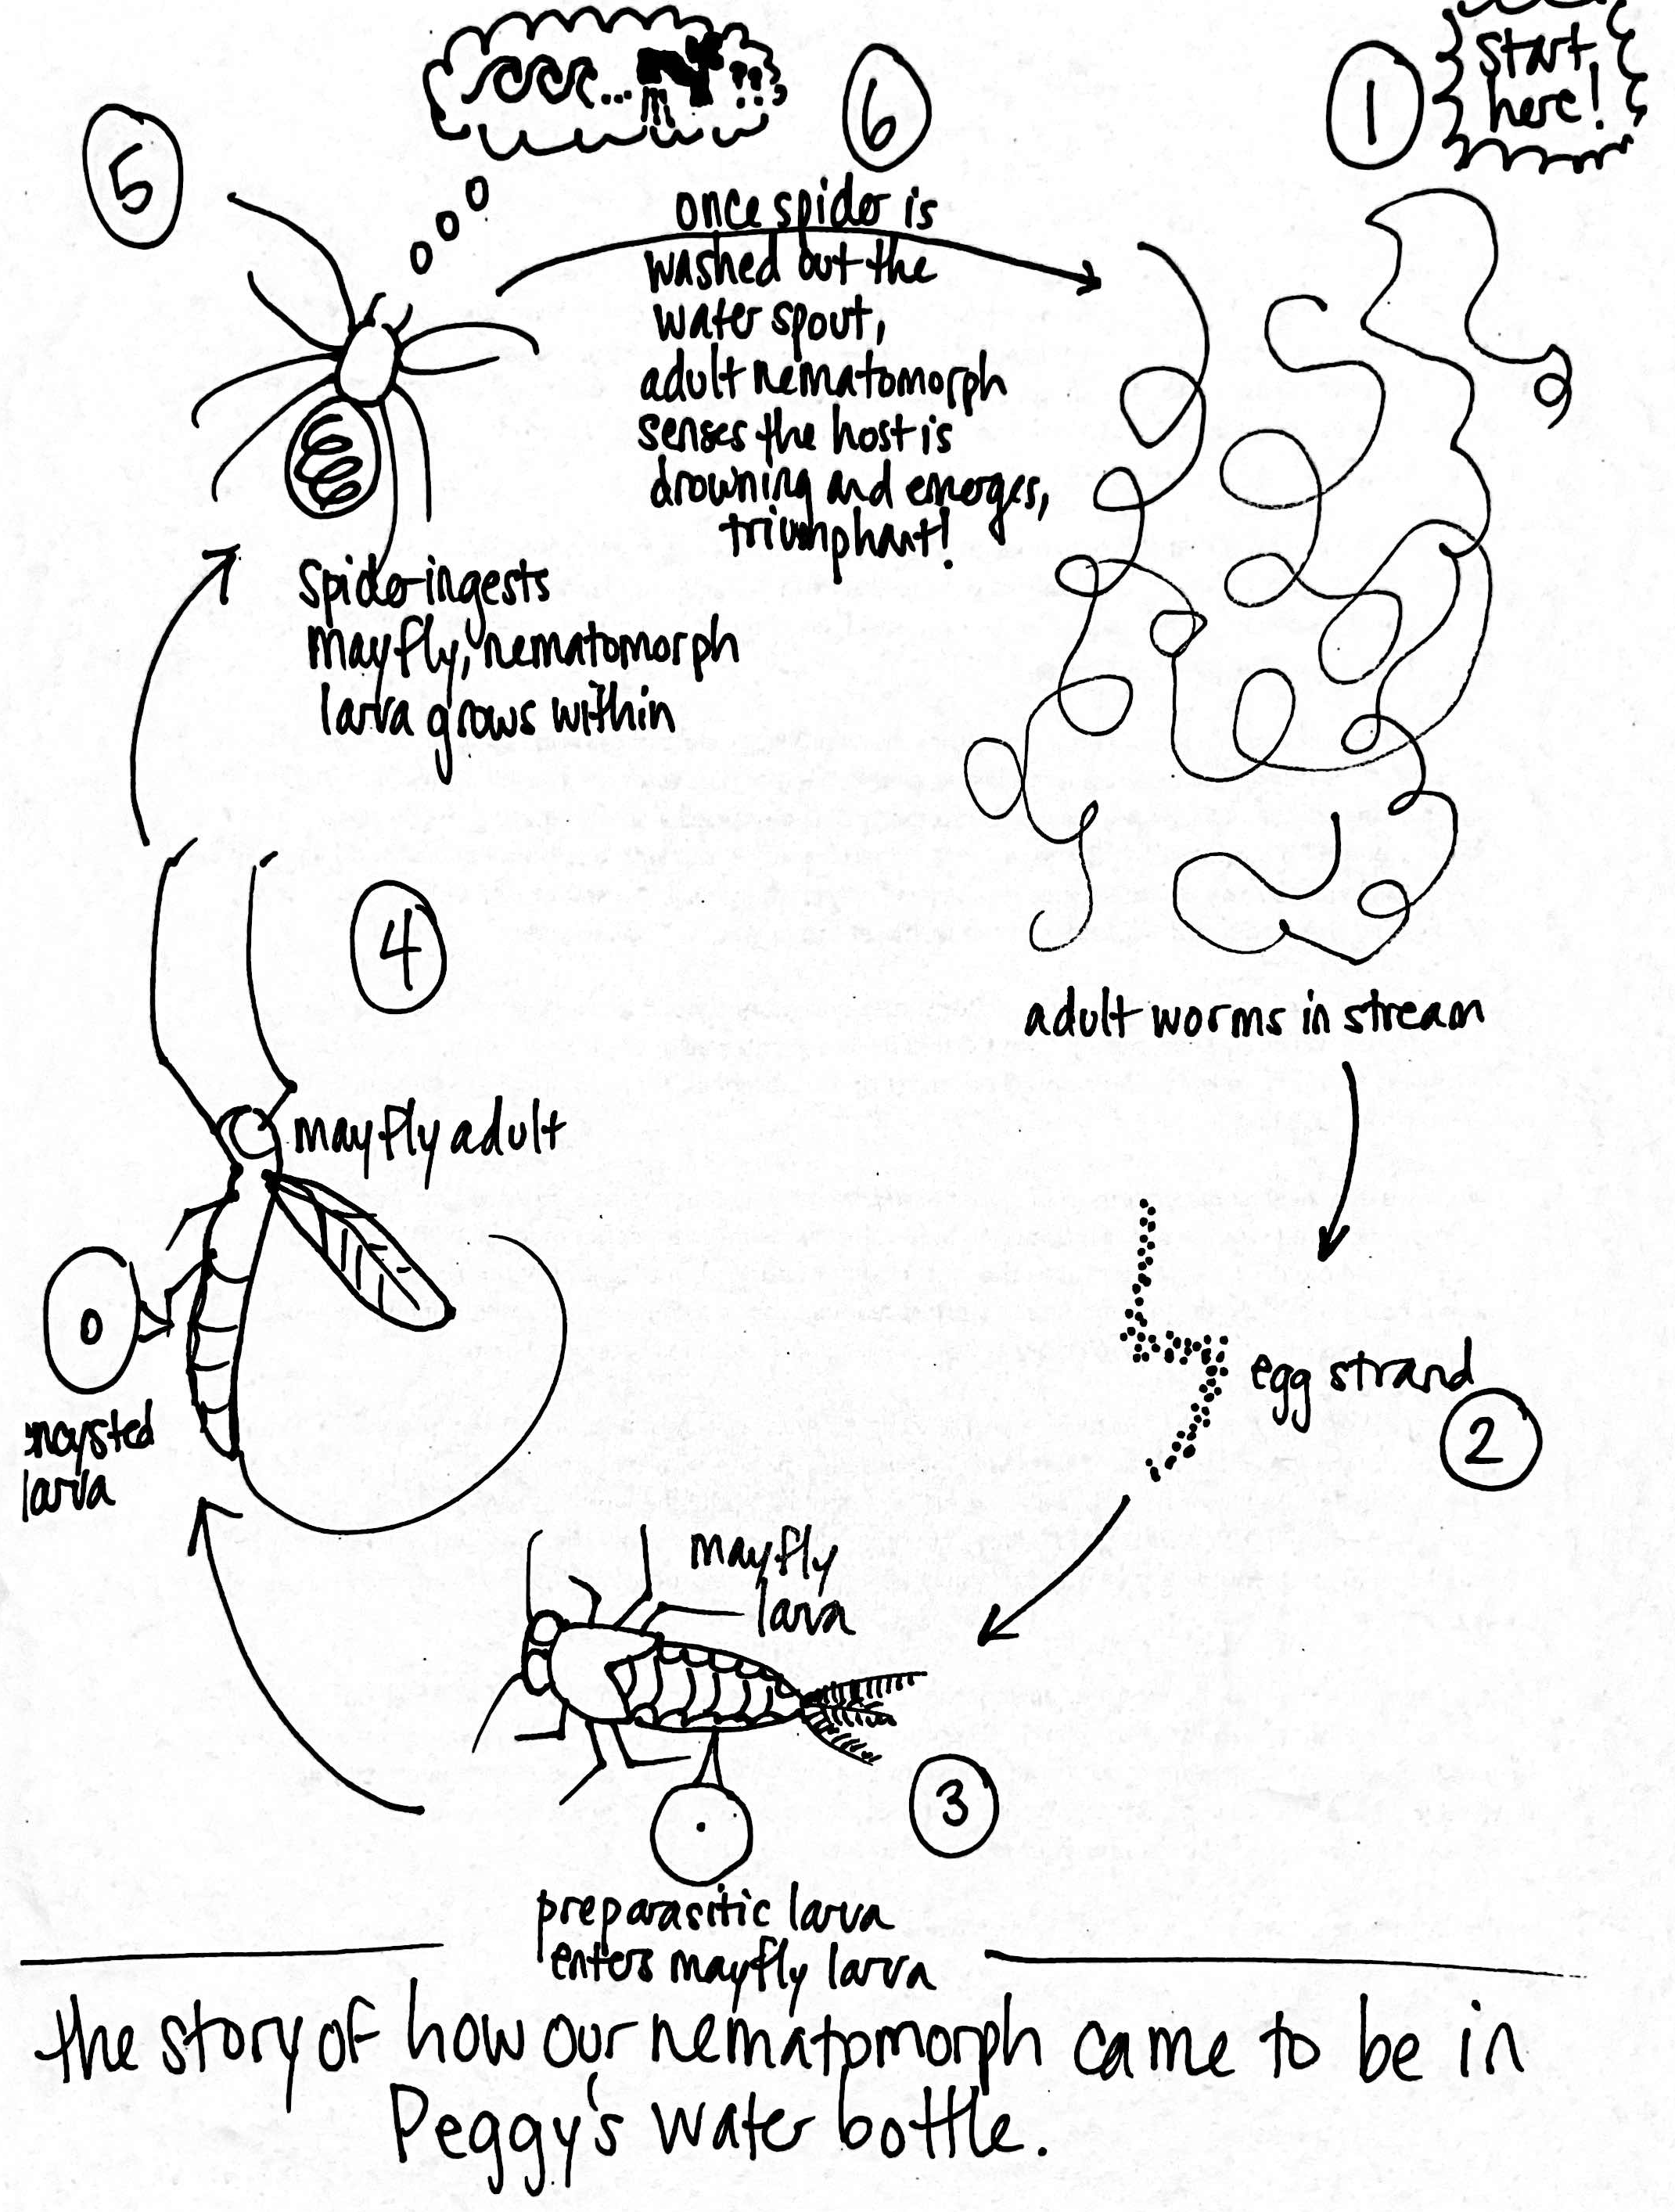 1
start
here!
adult worms in stream
2
egg strand
3
mayfly
larva
preparasitic larva
enters mayfly larva
4
mayfly adult
encysted
larva
5
spider ingests
mayfly, nematomorph
larva grows within
??
!!
6
once spider is
washed out the
water spout,
adult nematomorph
senses the host is
drowning and emerges,
triumphant!
the story of how our nematomorph came to be in
Peggy's water bottle.